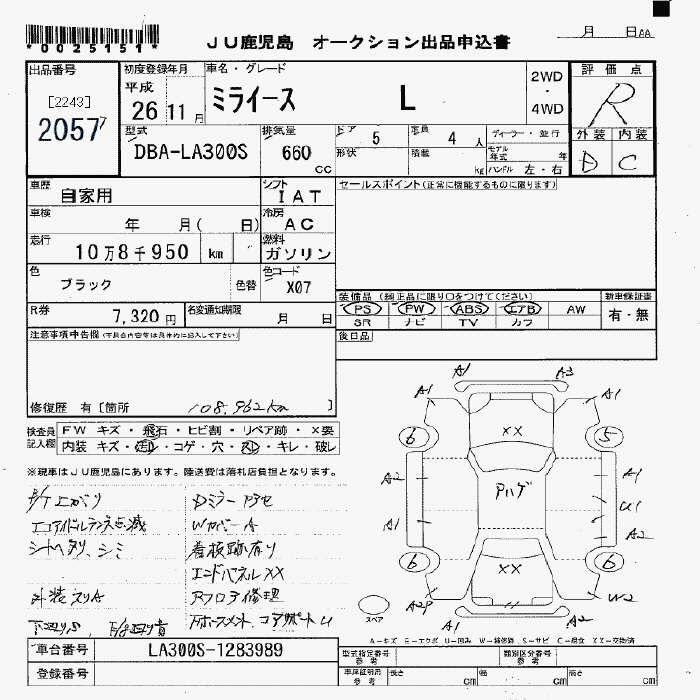 *0025151*
JU鹿児島 オークション出品申込書
月 日
出品番号
[2243]
2057
初度登録年月
平成
26 11月
車名・グレード
ミライース L
2WD
・
4WD
評価点
R
外装 内装
D C
型式
DBA-LA300S
排気量
660
CC
ドア
5
定員
4人
形状
積載
kg
ディーラー・並行
モデル年式 年
ハンドル 左・右
車歴
自家用
シフト
IAT
車検
年 月( 日)
冷房
AC
走行
10万8千950 km
燃料
ガソリン
色
ブラック
色替
色コード
X07
R券
7,320円
名変通知期限
月 日
セールスポイント(正常に機能するものに限ります)
装備品(純正品に限り○をつけてください)
PS PW ABS エアB AW
SR ナビ TV カワ
新車保証書
有・無
後日品
注意事項申告欄
修復歴 有[箇所 108,962km ]
検査員記入欄
FW キズ・飛石・ヒビ割・リペア跡・×要
内装 キズ・汚れ・コゲ・穴・スレ・キレ・破レ
※現車はJU鹿児島にあります。陸送費は落札店負担となります。
エコアイドルランプ点滅
シートヘタリ、シミ
外装スリA
Dミラー
WカバーA
看板跡有り
エンドパネルXX
Aフロア修理
A1 A3
A1 A1
XX
6 5
A2 A1
アハゲ
U1
A1 A2
6 6
XX
A2P W2
スペア
A1 A2
A-キズ E-エクボ U-凹み W-補修跡 S-サビ C-腐食 XX-交換済
車台番号
LA300S-1283989
登録番号
型式指定番号
参考
類別区分番号
参考
車庫証明用
参考
長さ cm
幅 cm
高さ cm